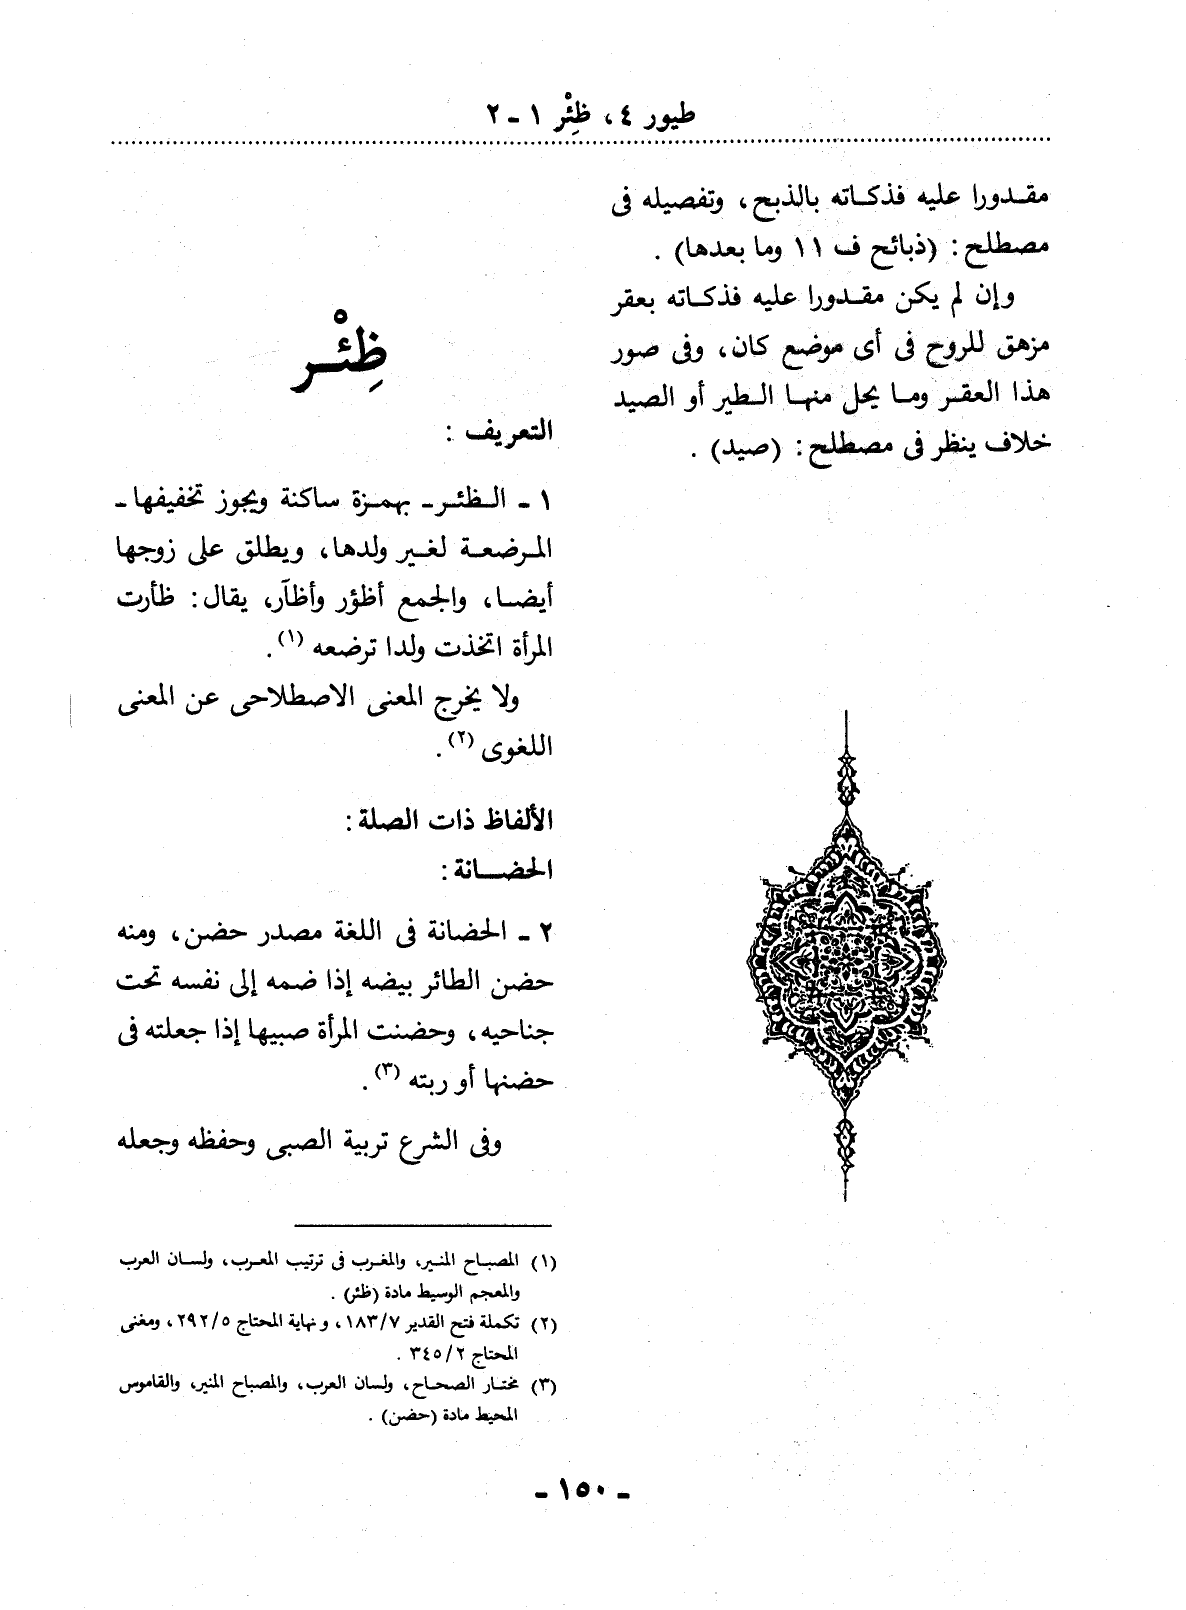 طيور ٤، ظِئْر ١ - ٢
مقـدورا عليه فذكـاته بالذبح، وتفصيله فى
مصطلح: (ذبائح ف ١١ وما بعدها) .
وإن لم يكن مقـدورا عليه فذكـاته بعقر
مزهق للروح فى أى موضع كان، وفى صور
هذا العقـر ومـا يحل منهـا الـطير أو الصيد
خلاف ينظر فى مصطلح: (صيد) .
ظِئْـر
التعريف :
١ - الـظئـر - بهمـزة ساكنة ويجوز تخفيفها -
المـرضعـة لغـير ولدها، ويطلق على زوجها
أيضـا، والجمع أظؤر وأظآر، يقال: ظأرت
المرأة اتخذت ولدا ترضعه (١).
ولا يخرج المعنى الاصطلاحى عن المعنى
اللغوى (٢).
الألفاظ ذات الصلة:
الحضـــانة :
٢ - الحضانة فى اللغة مصدر حضن، ومنه
حضن الطائر بيضه إذا ضمه إلى نفسه تحت
جناحيه، وحضنت المرأة صبيها إذا جعلته فى
حضنها أو ربته (٣).
وفى الشرع تربية الصبى وحفظه وجعله
(١) المصبـاح المنـير، والمغـرب فى ترتيب المعـرب، ولسـان العرب
والمعجم الوسيط مادة (ظئر) .
(٢) تكملة فتح القدير ١٨٣/٧، ونهاية المحتاج ٢٩٢/٥، ومغنى
المحتاج ٣٤٥/٢ .
(٣) مختـار الصحـاح، ولسان العرب، والمصباح المنير، والقاموس
المحيط مادة (حضن) .
- ١٥٠ -